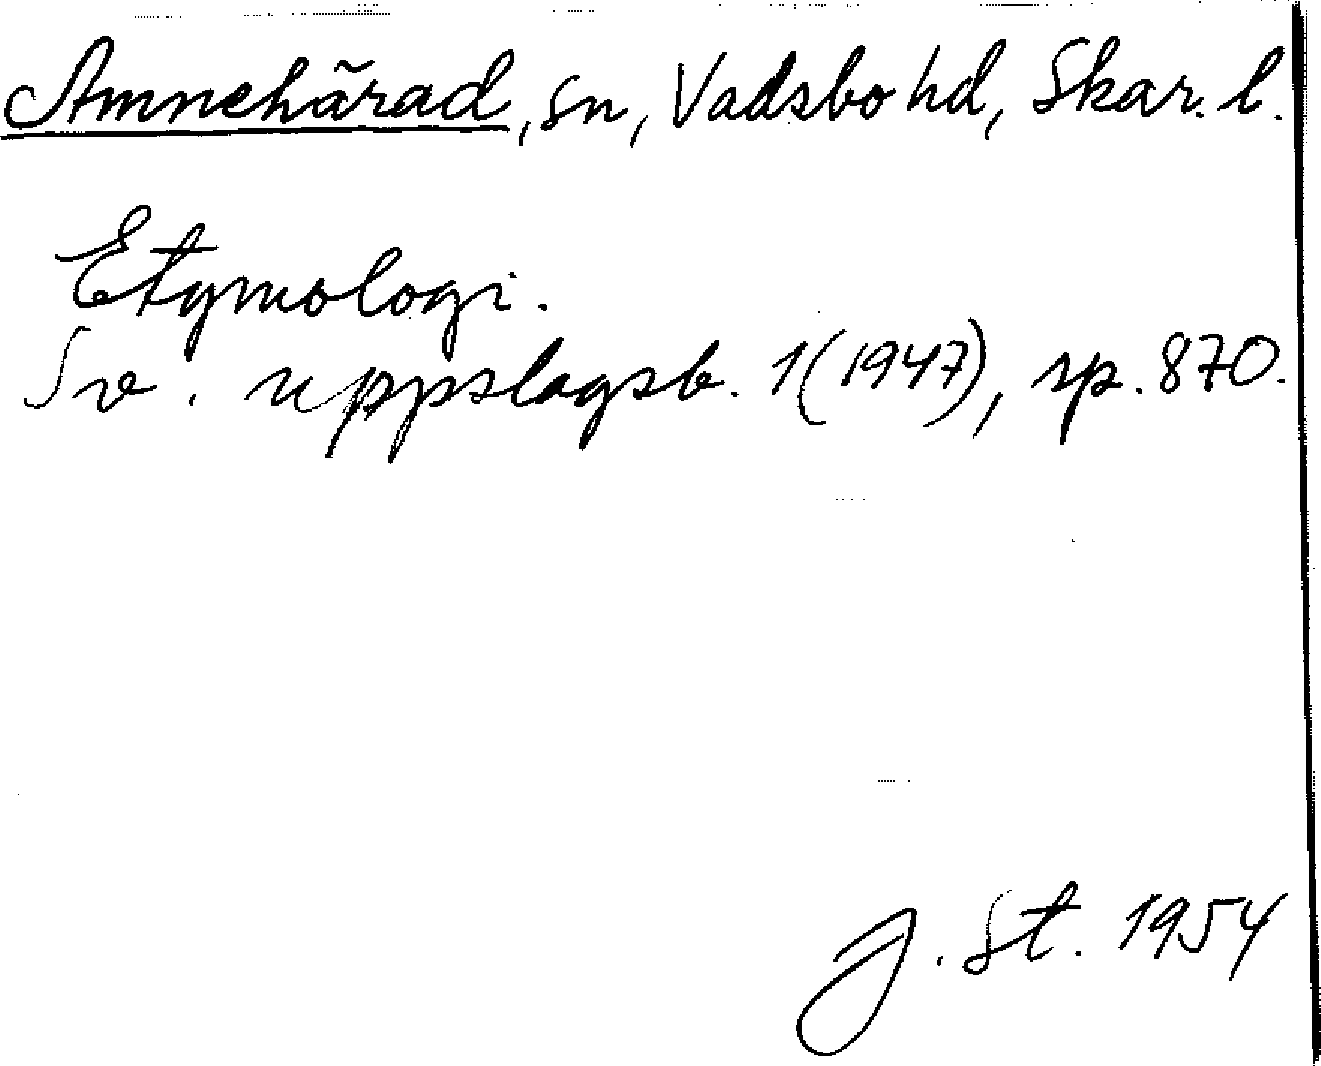 Amnehärad, sn, Vadsbo hd, Skar. l.
Etymologi.
Sv. uppslagsb. 1(1947), sp. 870.
J. St. 1954